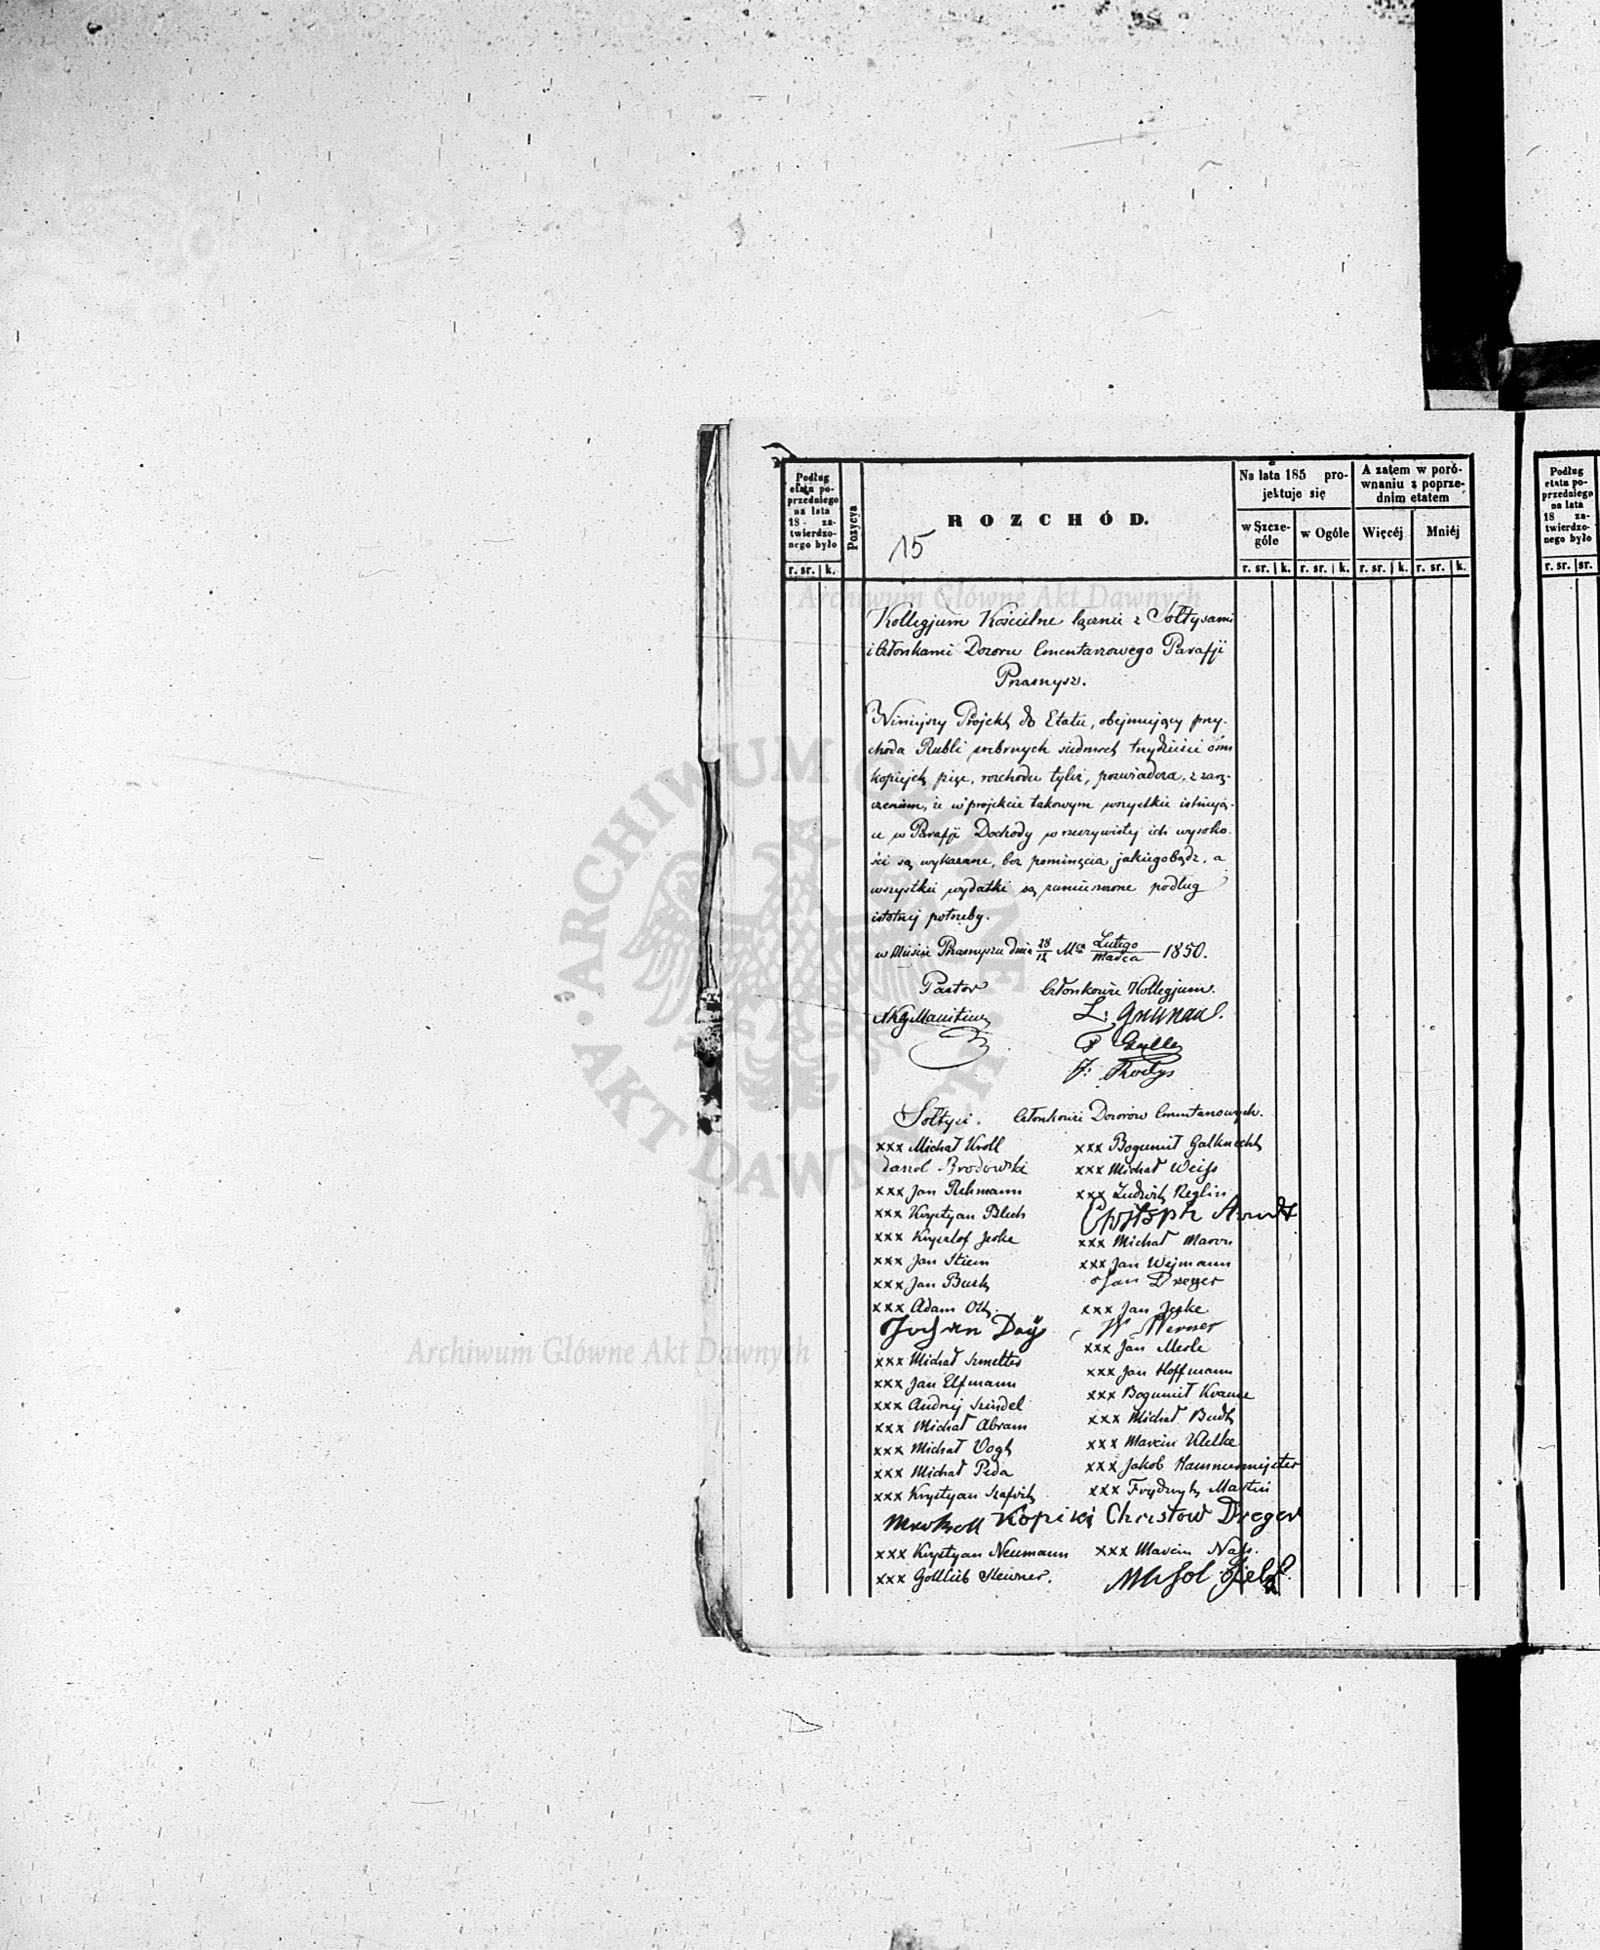 Podług etatu poprzedniego na lata 18 zatwierdzonego było
r. sr. k.
Pozycya
ROZCHÓD.
15
Na lata 185 projektuje się
w Szczególe
w Ogóle
A zatem w porównaniu z poprzednim etatem
Więcéj
Mniéj
r. sr. k. r. sr. k. r. sr. k. r. sr. k.
Archiwum Główne Akt Dawnych
Kollegjum Kościelne łącznie z Sołtysami
i Członkami Dozoru Cmentarzowego Parafji
Przasnysz.
Niniejszy Projekt do Etatu, obejmujący przy-
chodu Rubli srebrnych siedmset trzydzieści ośm
kopiejek pięć, rozchodu tyleż, poświadcza, z zarę-
czeniem, iż w projekcie takowym wszystkie istnieją-
ce w Parafji Dochody w rzeczywistej ich wysoko-
ści są wykazane, bez pominięcia jakiegobądź, a
wszystkie wydatki są zamieszczone podług
istotnej potrzeby.
w Mieście Przasnyszu dnia 28/12 Mca Lutego/Marca 1850.
Pastor Członkowie Kollegjum.
L:
F
J:
Sołtysi. Członkowie Dozorów Cmentarzowych.
xxx Michał Kroll xxx Bogumił Galknecht
Daniel Brodowski xxx Michał Weiss
xxx Jan Rehmann xxx Ludwik Reglin
xxx Krystyan Blech Christoph Arndt
xxx Krysztof Jeske xxx Michał
xxx Jan Stiem xxx Jan Wejmann
xxx Jan Jan Dreger
xxx Adam Ott xxx Jan Jeske
Johan Day W Werner
xxx Michał Szmelter xxx Jan
xxx Jan Elfmann xxx Jan Hoffmann
xxx Andrzej Szindel xxx Bogumił Krause
xxx Michał Abram xxx Michał
xxx Michał Vogt xxx Marcin
xxx Michał Peda xxx Jakób Hammermejster
xxx Krystyan xxx Frydryk Martin
Kopiski Christow Dreger
xxx Krystyan Neumann xxx Marcin Nass.
xxx Gottlieb
ARCHIWUM GŁÓWNE AKT DAWNYCH
Archiwum Główne Akt Dawnych
Podług etatu poprzedniego na lata 18 zatwierdzonego było
r. sr. sr.